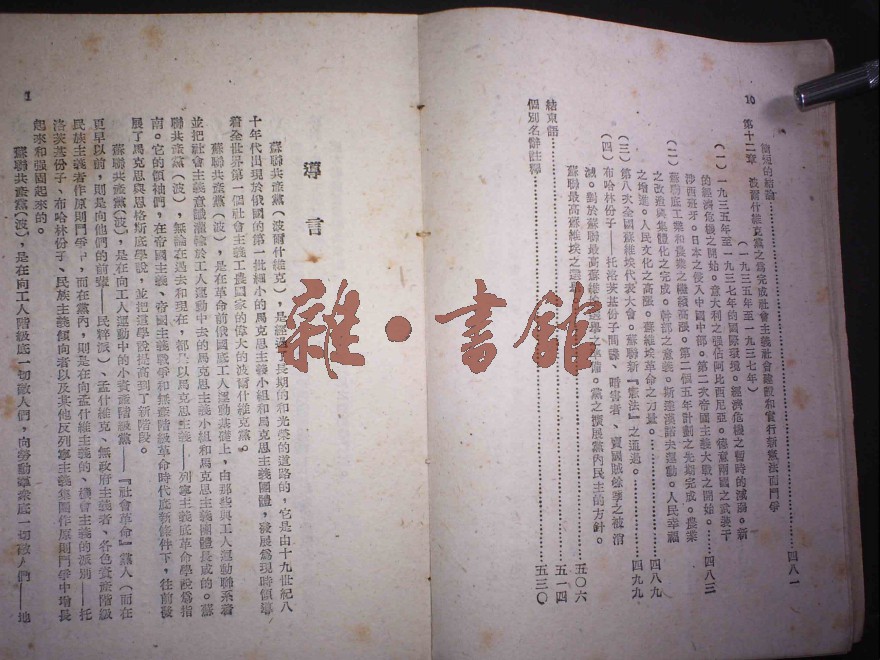 10
簡短的結論……四八一
第十二章 波爾什維克黨之爲完成社會主義社會建設和實行新憲法而鬥爭
（一九三五年至一九三七年）
（一）一九三五年至一九三七年的國際環境。經濟危機之暫時的減弱。新
的經濟危機之開始。意大利之强佔阿比西尼亞。德意兩國之武裝干
涉西班牙。日本之侵入中國中部。第二次帝國主義大戰之開始。……四八三
（二）蘇聯底工業和農業之繼續高漲。第二個五年計劃之先期完成。農業
之改造與集體化之完成。幹部之意義。斯達漢諾夫運動。人民幸福
之增進。人民文化之高漲。蘇維埃革命之力量。……四八九
（三）第八次全國蘇維埃代表大會。蘇聯新『憲法』之通過。……四九九
（四）布哈林份子——托洛茨基份子間諜、暗害者、賣國賊餘孽之被消
滅。對於蘇聯最高蘇維埃之選舉之準備。黨之擴展黨內民主的方針。
蘇聯最高蘇維埃之選舉……五〇六
結束語……五一四
個別名辭註釋……五三〇
導言
蘇聯共產黨（波爾什維克），是經過了長期的和光榮的道路的，它是由十九世紀八
十年代出現於俄國的第一批細小的馬克思主義小組和馬克思主義團體，發展爲現時領導
着全世界第一個社會主義工農國家的偉大的波爾什維克黨。
蘇聯共產黨（波），是在革命前俄國底工人運動基礎上，由那些與工人運動聯系着
並把社會主義意識灌輸於工人運動中去的馬克思主義小組和馬克思主義團體長成的。蘇
聯共產黨（波），無論在過去和現在，都是以馬克思主義——列寧主義底革命學說爲指
南。它的領袖們，在帝國主義、帝國主義戰爭和無產階級革命時代底新條件下，往前發
展了馬克思與恩格斯底學說，並把這學說提高到了新階段。
蘇聯共產黨（波），是在向工人運動中的小資產階級黨——『社會革命』黨人（而在
更早以前，則是向他們的前輩——民粹派）、孟什維克、無政府主義者、各色資產階級
民族主義者作原則鬥爭中，而在黨內，則是在向孟什維主義的、機會主義的派別——托
洛茨基份子、布哈林份子、民族主義傾向者以及其他反列寧主義集團作原則鬥爭中增長
起來和强固起來的。
蘇聯共產黨（波），是在向工人階級底一切敵人們，向勞動羣衆底一切敵人們——地
1
雜·書館